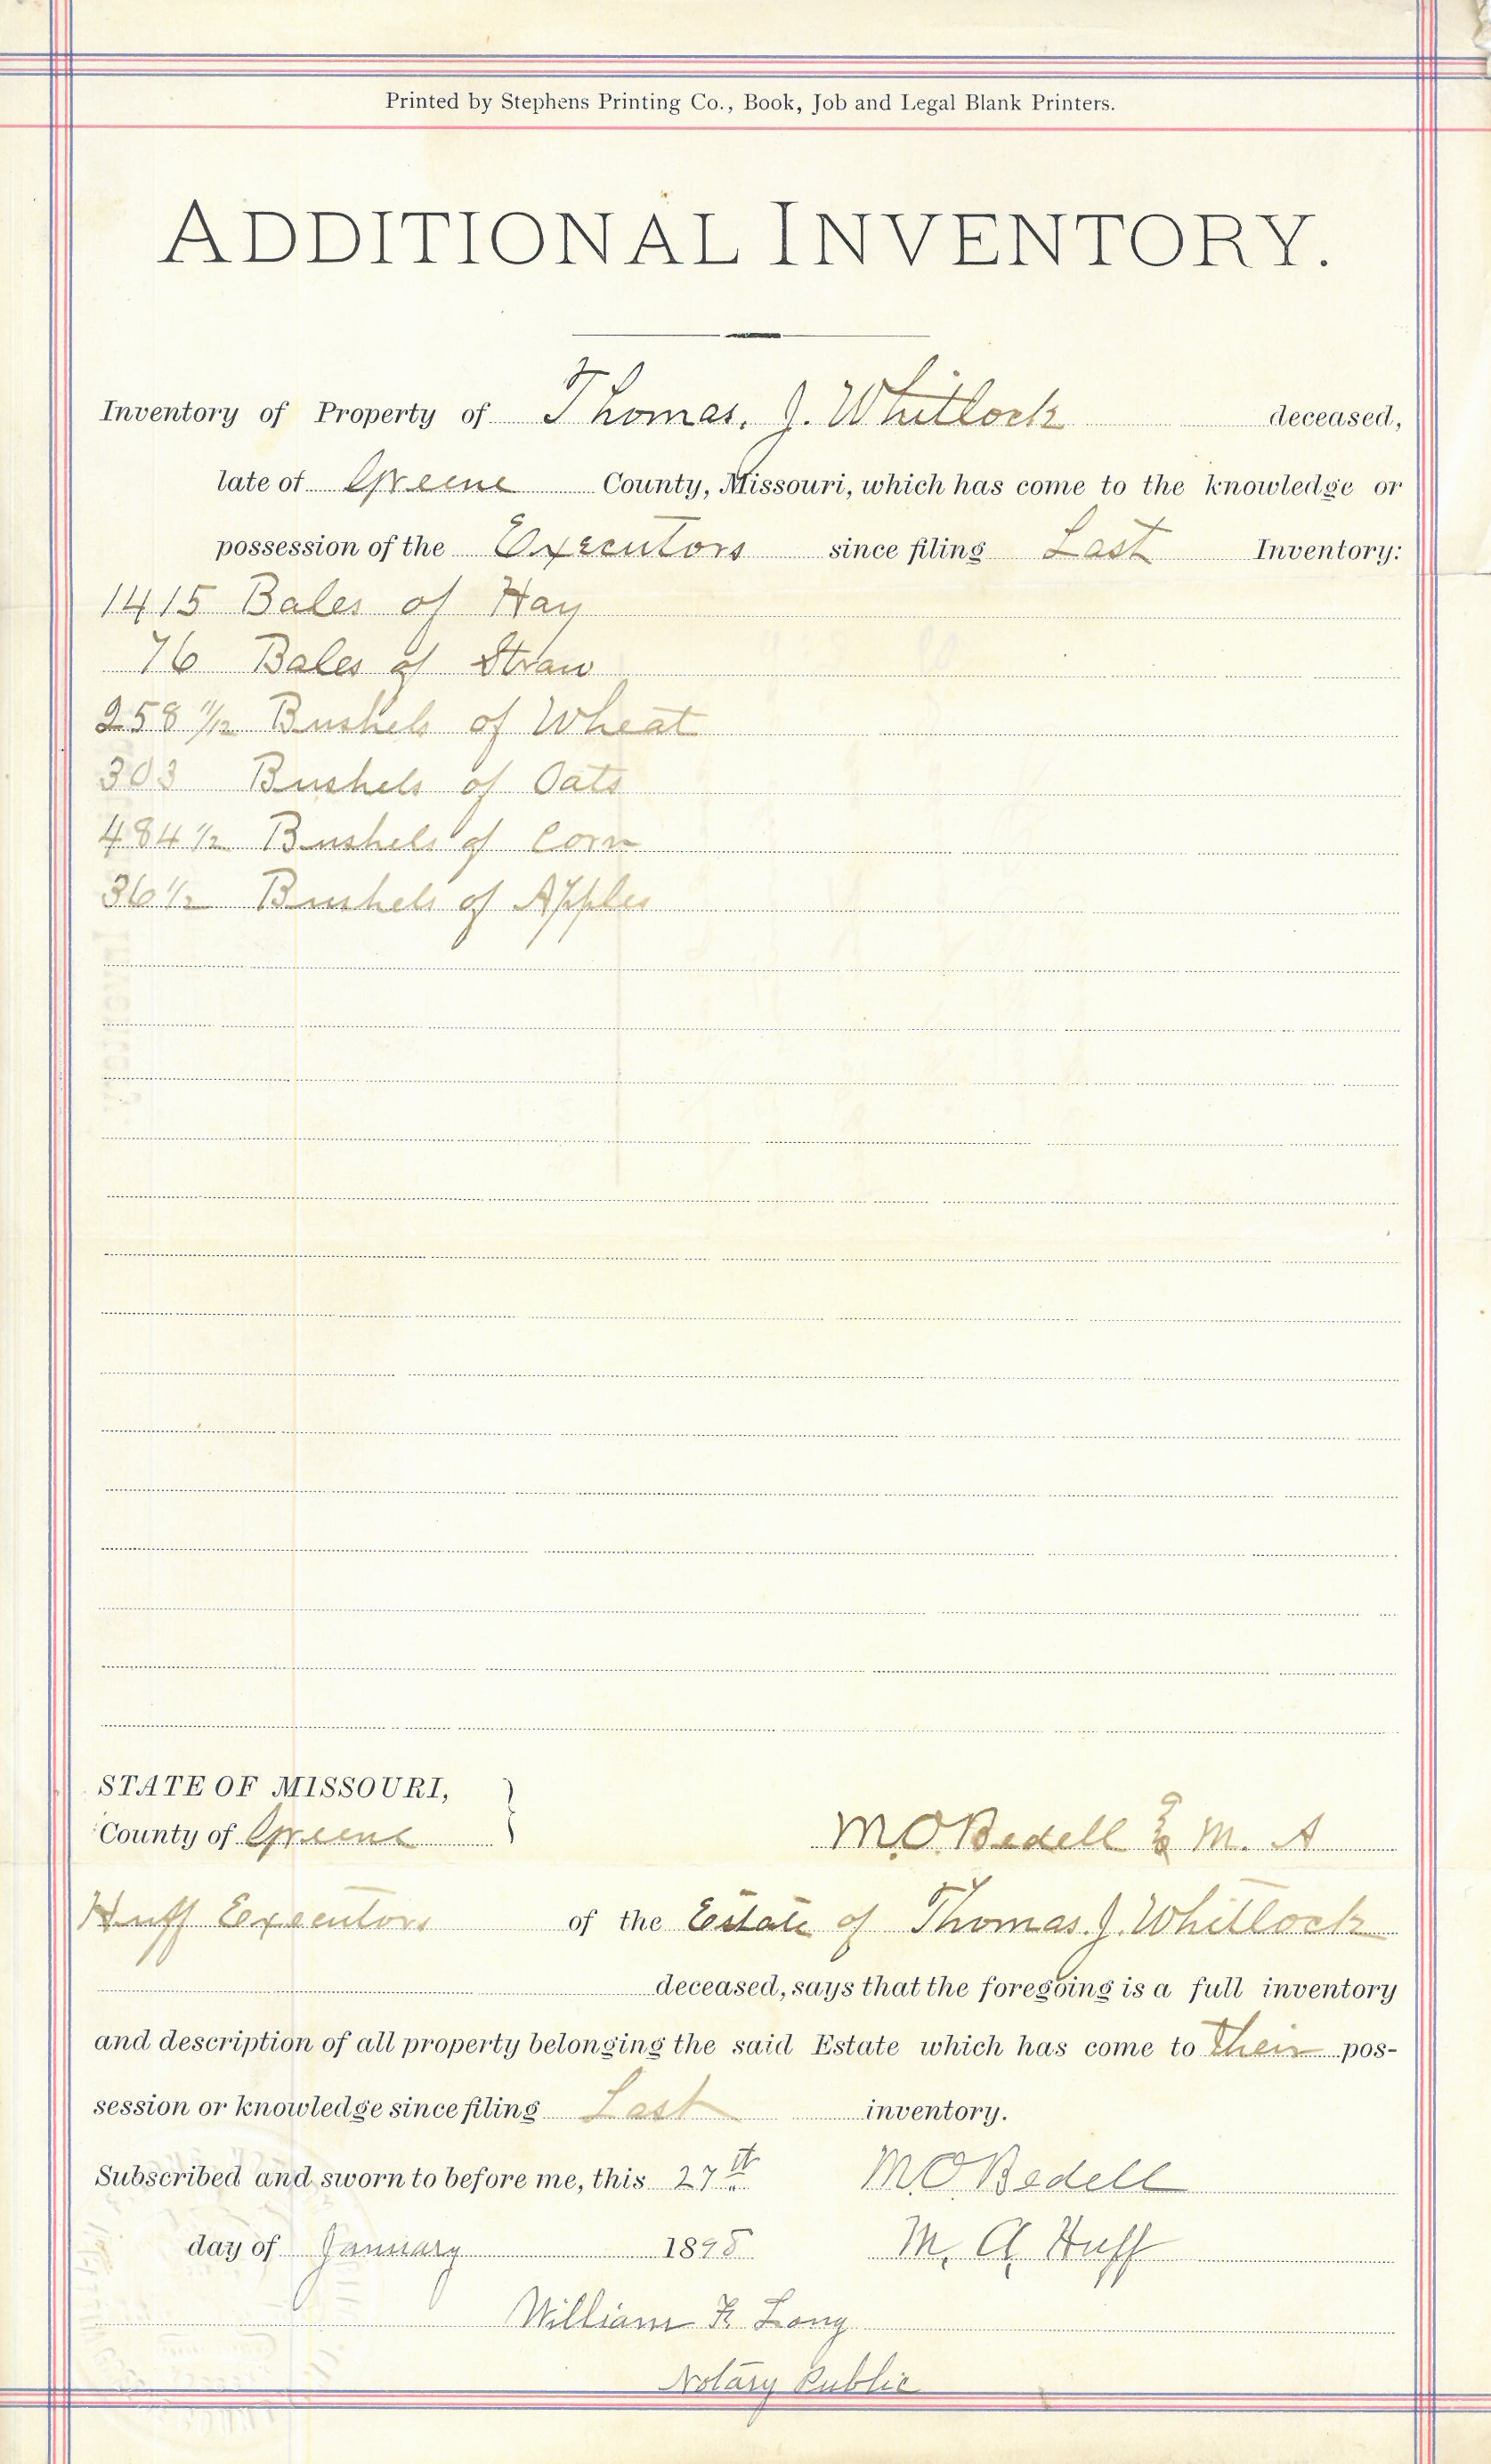 Printed by Stephens Printing Co., Book, Job and Legal Blank Printers.
ADDITIONAL INVENTORY.
Inventory of Property of Thomas. J. Whitlock deceased,
late of Greene County, Missouri, which has come to the knowledge or
possession of the Executors since filing Last Inventory:
1415 Bales of Hay
76 Bales of Straw
258 11/12 Bushels of Wheat
303 Bushels of Oats
484 1/2 Bushels of Corn
36 1/2 Bushels of Apples
STATE OF MISSOURI,
County of Greene } M.O. Bedell & M. A
Huff Executors of the Estate of Thomas. J. Whitlock
deceased, says that the foregoing is a full inventory
and description of all property belonging the said Estate which has come to their pos-
session or knowledge since filing Last inventory.
Subscribed and sworn to before me, this 27th M.O. Bedell
day of January 1898 M. A. Huff
William F. Long
Notary Public